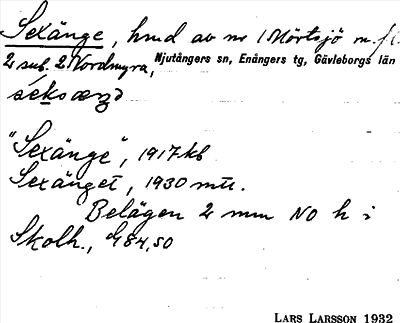 Sexänge, hmd av nr 1 Mörtsjö m.fl.
2 sub. 2 Nordmyra, Njutångers sn, Enångers tg, Gävleborgs län
"Sexänge", 1917 kb
Sexänget, 1930 mtl.
Belägen 2 mm NO h i
Skolh., G84,50
LARS LARSSON 1932